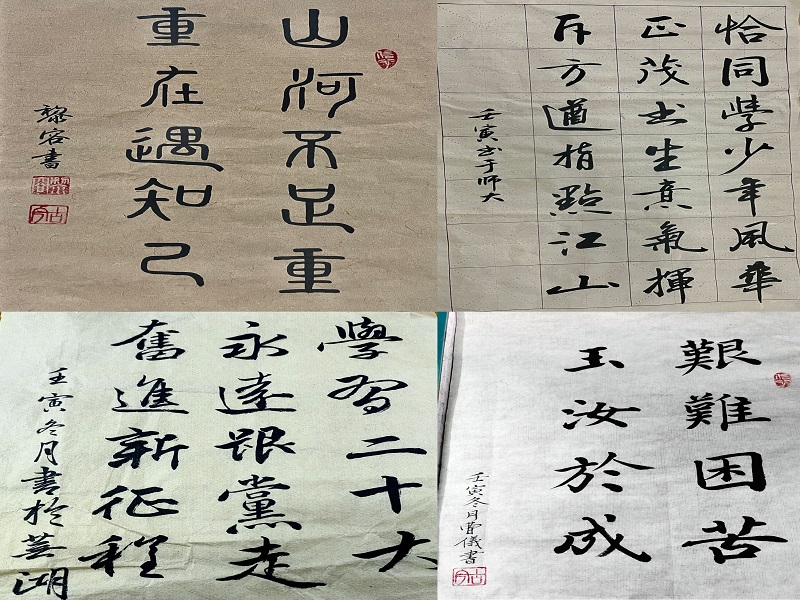 山河不足重
重在遇知己
黎容書
恰同學少年風華
正茂书生意氣揮
斥方遒指點江山
壬寅书于师大
學習二十大
永遠跟黨走
奮進新征程
壬寅冬月書於蕪湖
艱難困苦
玉汝於成
壬寅冬月曹儀書